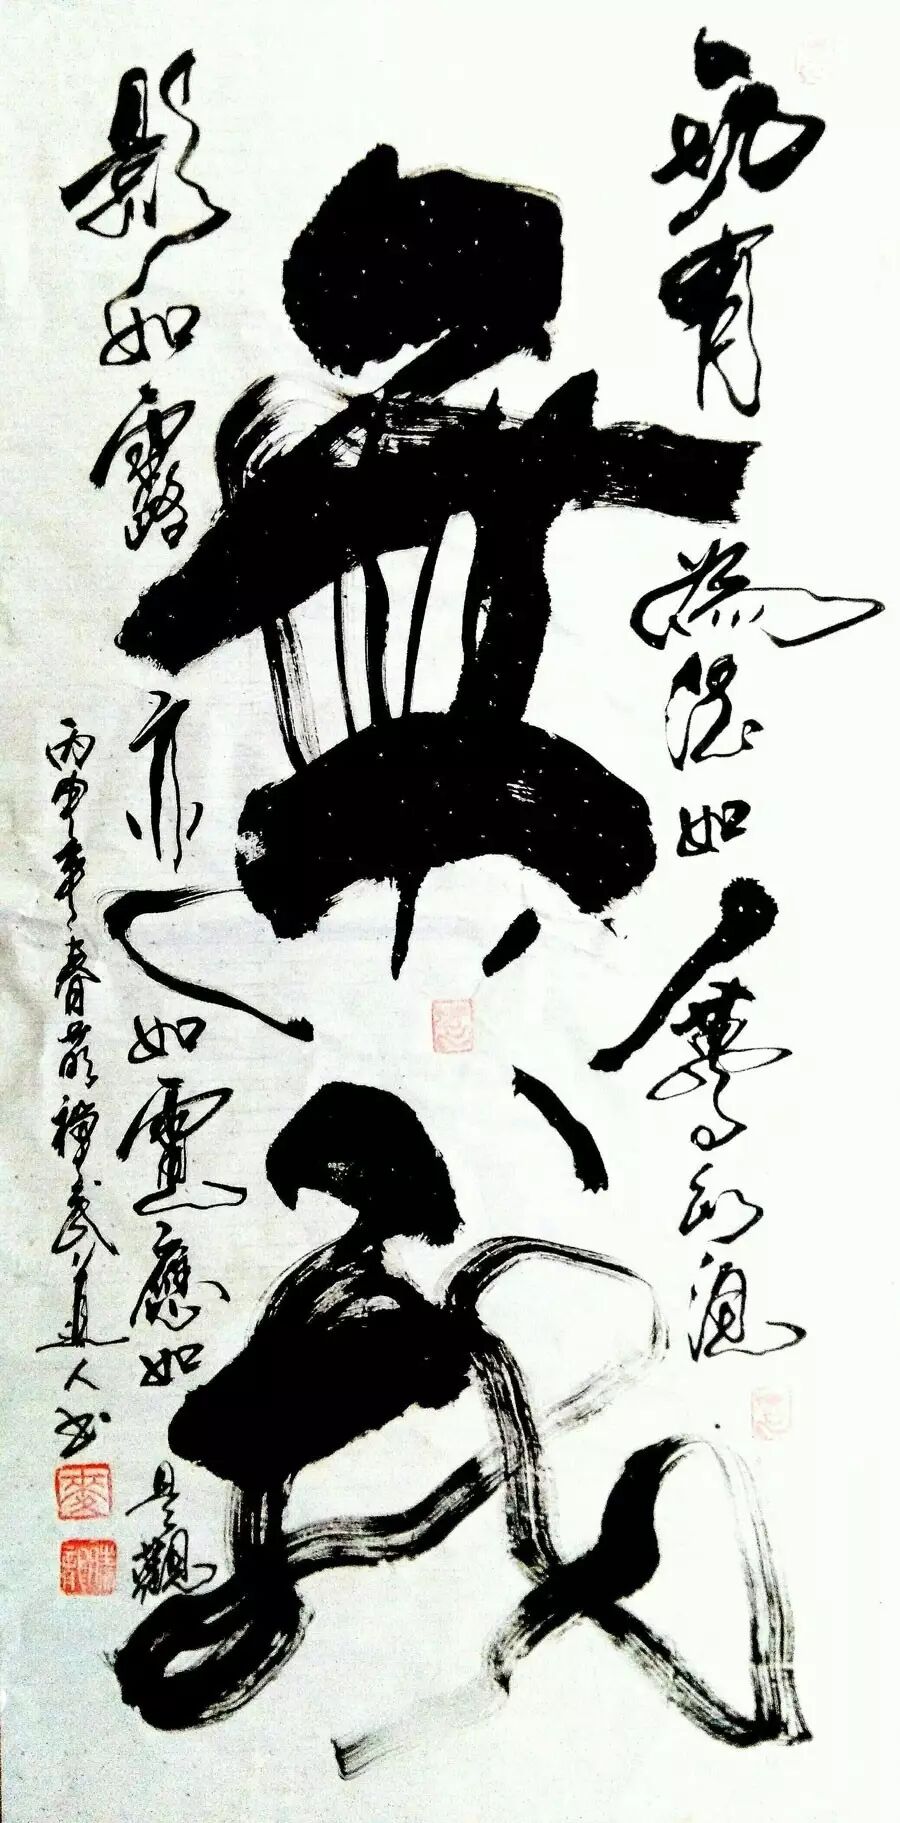 一切有為法如夢幻泡
無我
影如露亦如電應如是觀
丙申年春禅武道人书